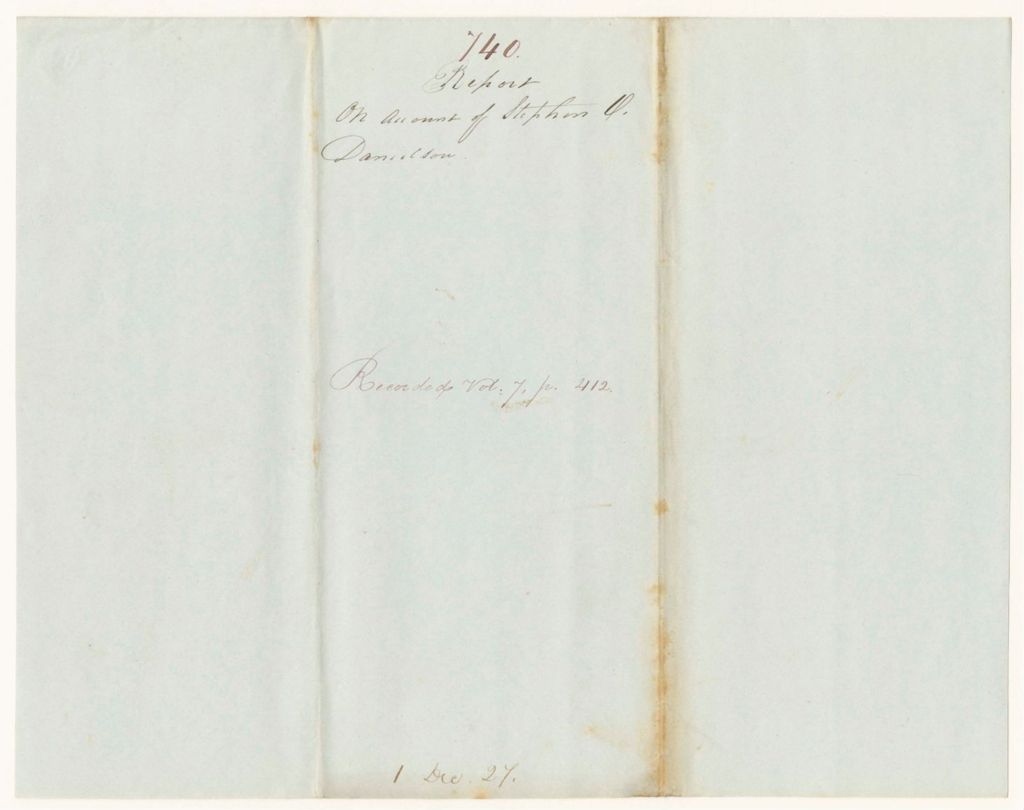 740.
Report
On account of Stephen O.
Danielson.
Recorded Vol: 7, p. 412.
1 Dec. 27.